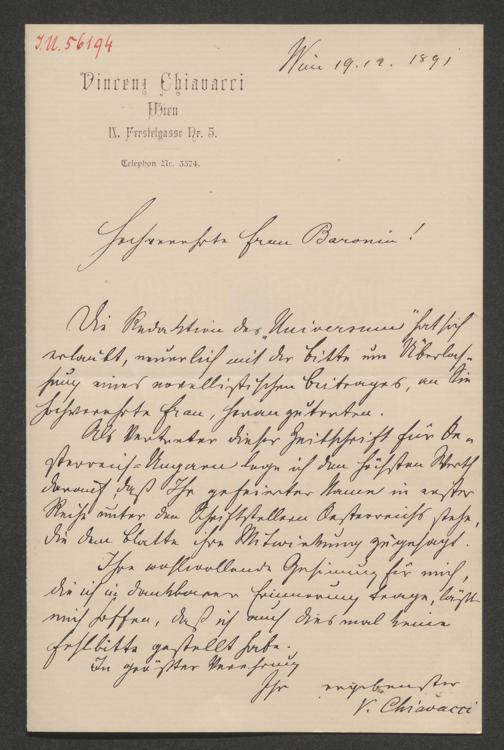 J.N. 56194
Wien 19.12. 1891
Vincenz Chiavacci
Wien
IX. Ferstelgasse Nr. 5.
Telephon Nr. 5574.
Hochverehrte Frau Baronin!
Die Redaktion des "Universum" hat sich
erlaubt, neuerlich mit der Bitte um Überlas-
sung eines novellistischen Beitrages, an Sie
hochverehrte Frau, heranzutreten.
Als Vertreter dieser Zeitschrift für Oe-
sterreich-Ungarn lege ich den höchsten Werth
darauf daß Ihr gefeierter Name in erster
Reihe unter den Schriftstellern Oesterreichs stehe,
die dem Blatte ihre Mitwirkung zugesagt.
Ihre wohlwollende Gesinnung für mich,
die ich in dankbarer Erinnerung trage, läßt
mich hoffen, daß ich auch diesmal keine
Fehlbitte gestellt habe.
In größter Verehrung
Ihr ergebenster
V. Chiavacci